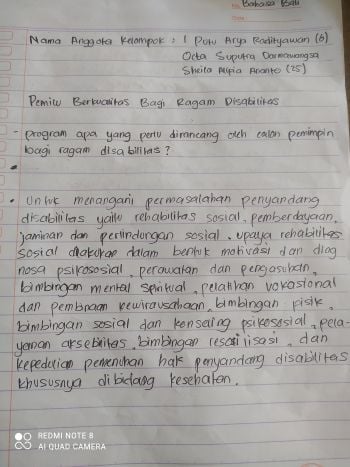 No: Bahasa Bali
Date:
Nama Anggota Kelompok : 1 Putu Arya Radityawan (6)
Octa Suputra Darmawangsa
Sheila Alpia Ananto (25)
Pemilu Berkualitas Bagi Ragam Disabilitas
- program apa yang perlu dirancang oleh calon pemimpin
bagi ragam disabilitas ?
• Untuk menangani permasalahan penyandang
disabilitas yaitu rehabilitas sosial, pemberdayaan,
jaminan dan perlindungan sosial. upaya rehabilitas
sosial dilakukan dalam bentuk motivasi dan diag
nosa psikososial, perawatan dan pengasuhan,
bimbingan mental spiritual, pelatihan vokasional
dan pembinaan kewirausahaan, bimbingan fisik,
bimbingan sosial dan konseling psikososial, pela-
yanan aksebilitas, bimbingan resosilisasi, dan
kepedulian pemenuhan hak penyandang disabilitas
khususnya dibidang kesehatan.
REDMI NOTE 8
AI QUAD CAMERA